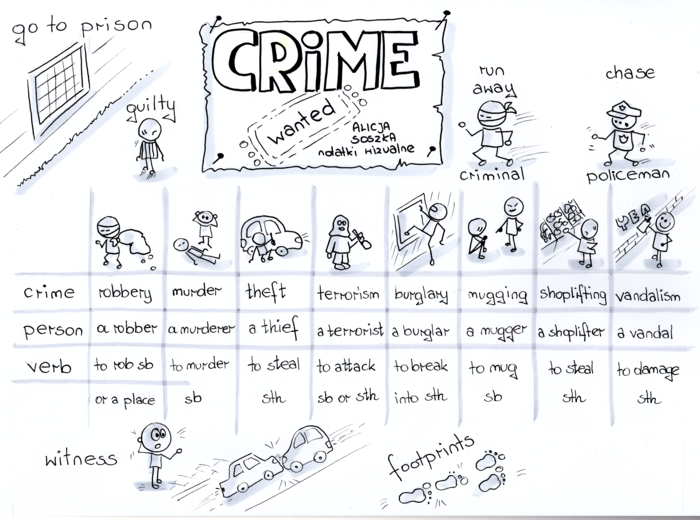 go to prison
CRIME
wanted
ALICJA
SOSZKA
notatki wizualne
guilty
run
away
criminal
chase
policeman
crime robbery murder theft terrorism burglary mugging shoplifting vandalism
person a robber a murderer a thief a terrorist a burglar a mugger a shoplifter a vandal
verb to rob sb to murder to steal to attack to break to mug to steal to damage
or a place sb sth sb or sth into sth sb sth sth
witness
footprints